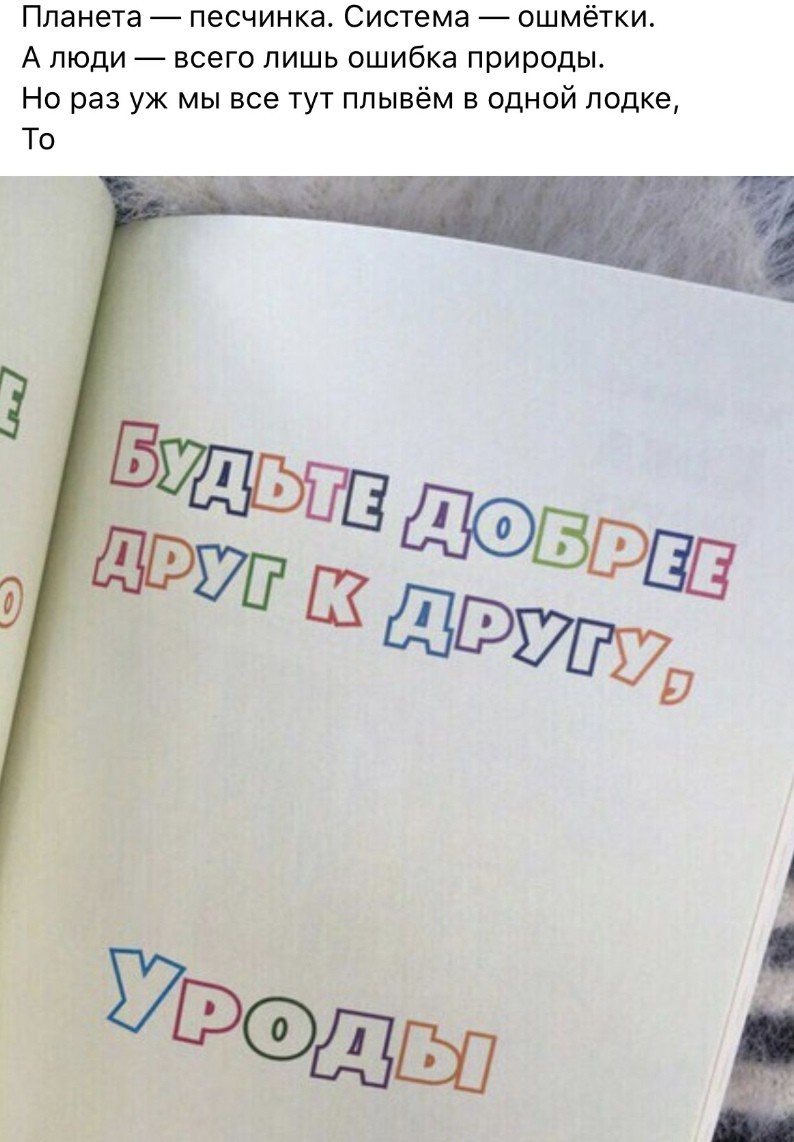 Планета — песчинка. Система — ошмётки.
А люди — всего лишь ошибка природы.
Но раз уж мы все тут плывём в одной лодке,
То
Е
О
БУДЬТЕ ДОБРЕЕ
ДРУГ К ДРУГУ,
УРОДЫ